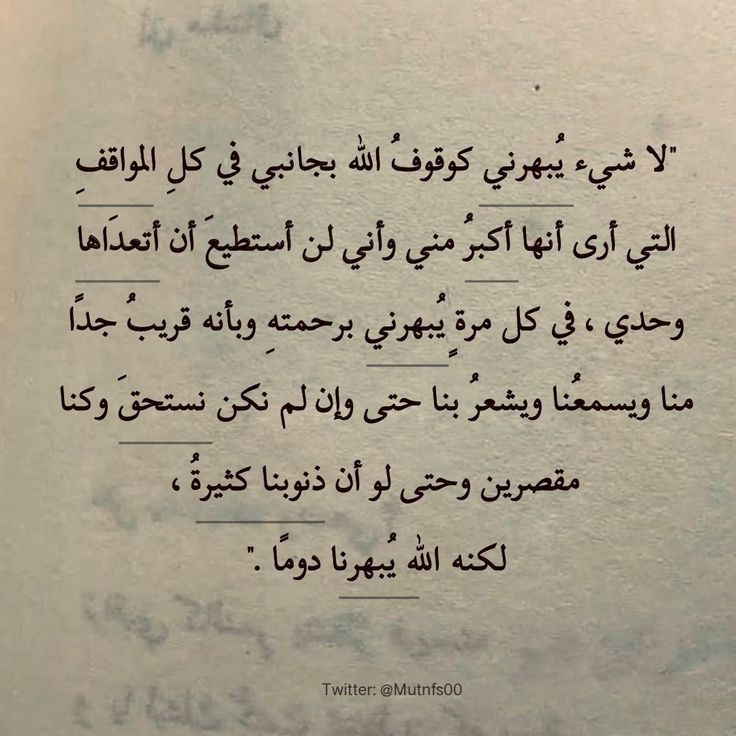 "لا شيء يُبهرني كوقوفُ الله بجانبي في كلِ المواقفِ
التي أرى أنها أكبرُ مني وأني لن أستطيعَ أن أتعدَاها
وحدي ، في كل مرةٍ يُبهرني برحمتهِ وبأنه قريبُ جدًا
منا ويسمعُنا ويشعرُ بنا حتى وإن لم نكن نستحقَ وكنا
مقصرين وحتى لو أن ذنوبنا كثيرةُ ،
لكنه الله يُبهرنا دومًا ."
Twitter: @Mutnfs00